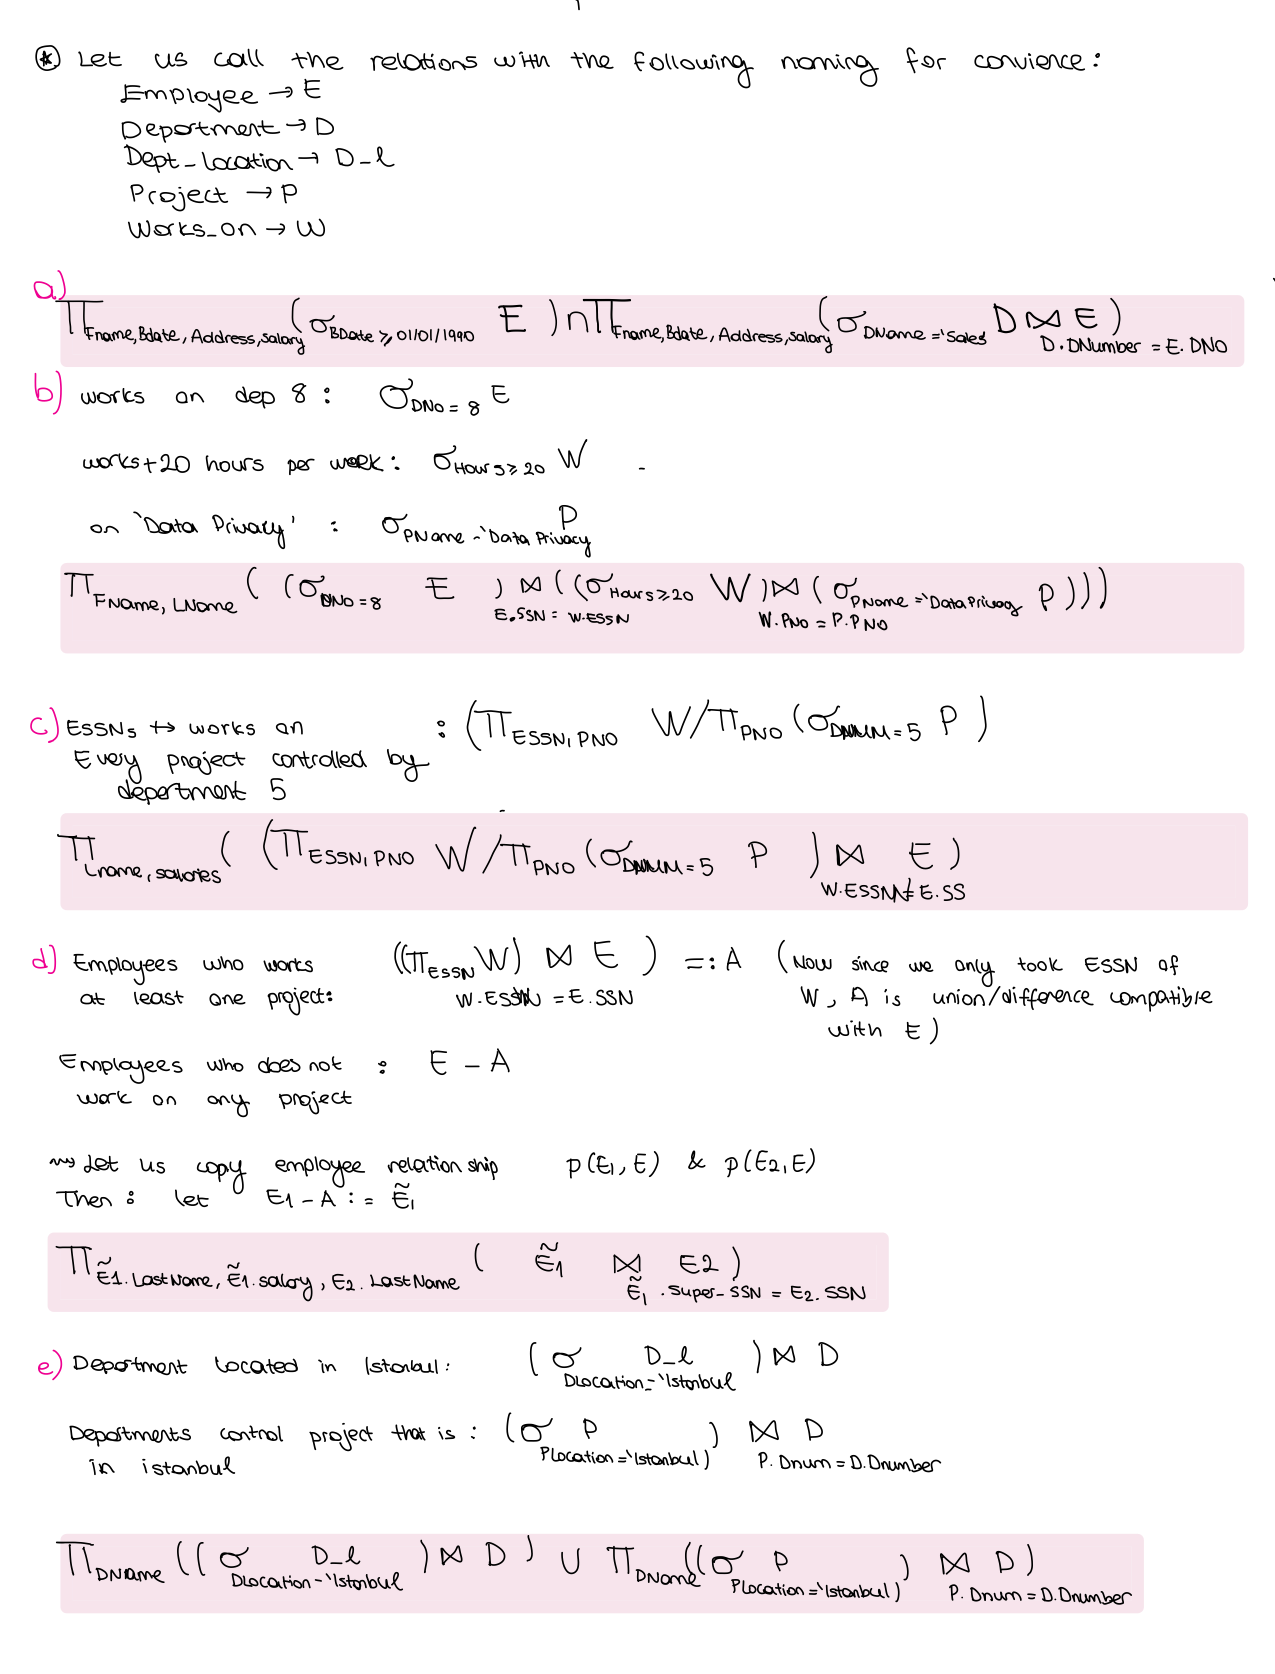 ⊛ Let us call the relations with the following naming for convience:
Employee → E
Department → D
Dept_location → D_l
Project → P
Works_on → W
a)
π Fname, Bdate, Address, salary (σ BDate ≥ 01/01/1990 E) ∩ π Fname, Bdate, Address, salary (σ DName = 'Sales D ⋈ E)
D.DNumber = E.DNO
b) works on dep 8 : σ DNo = 8 E
works +20 hours per week : σ Hours ≥ 20 W
on 'Data Privacy' : σ PName = 'Data Privacy P
π FName, LName ((σ DNO = 8 E) ⋈ ((σ Hours ≥ 20 W) ⋈ (σ PName = 'Data Privacy P)))
E.SSN = W.ESSN W.PNO = P.PNO
c) ESSNs ↔ works on : (π ESSN, PNO W / π PNO (σ DNUM = 5 P)
Every project controlled by
department 5
π Lname, salaries ((π ESSN, PNO W / π PNO (σ DNUM = 5 P) ⋈ E)
W.ESSN = E.SS
d) Employees who works ((π ESSN W) ⋈ E) =: A (Now since we only took ESSN of
at least one project: W.ESSN = E.SSN W, A is union/difference compatible
with E)
Employees who does not : E - A
work on any project
⇝ Let us copy employee relationship p(E1, E) & p(E2, E)
Then : let E1 - A := Ẽ1
π Ẽ1.LastName, Ẽ1.salary, E2.LastName ( Ẽ1 ⋈ E2)
Ẽ1.Super_SSN = E2.SSN
e) Department Located in Istanbul: (σ D_l) ⋈ D
DLocation = 'Istanbul
Departments control project that is : (σ P) ⋈ D
in istanbul PLocation = 'Istanbul) P.Dnum = D.Dnumber
π DName ((σ D_l) ⋈ D) ∪ π DName ((σ P) ⋈ D)
DLocation = 'Istanbul PLocation = 'Istanbul) P.Dnum = D.Dnumber